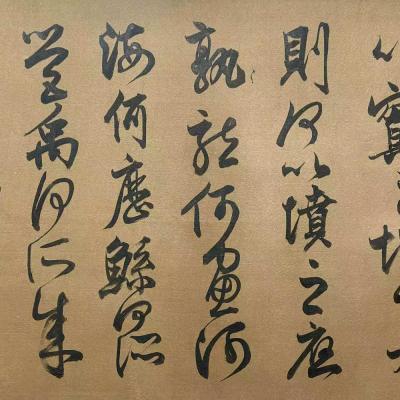 以窴之地方九
則何以墳之應
孰龍何畫河
海何歷鯀何所
營禹何所成